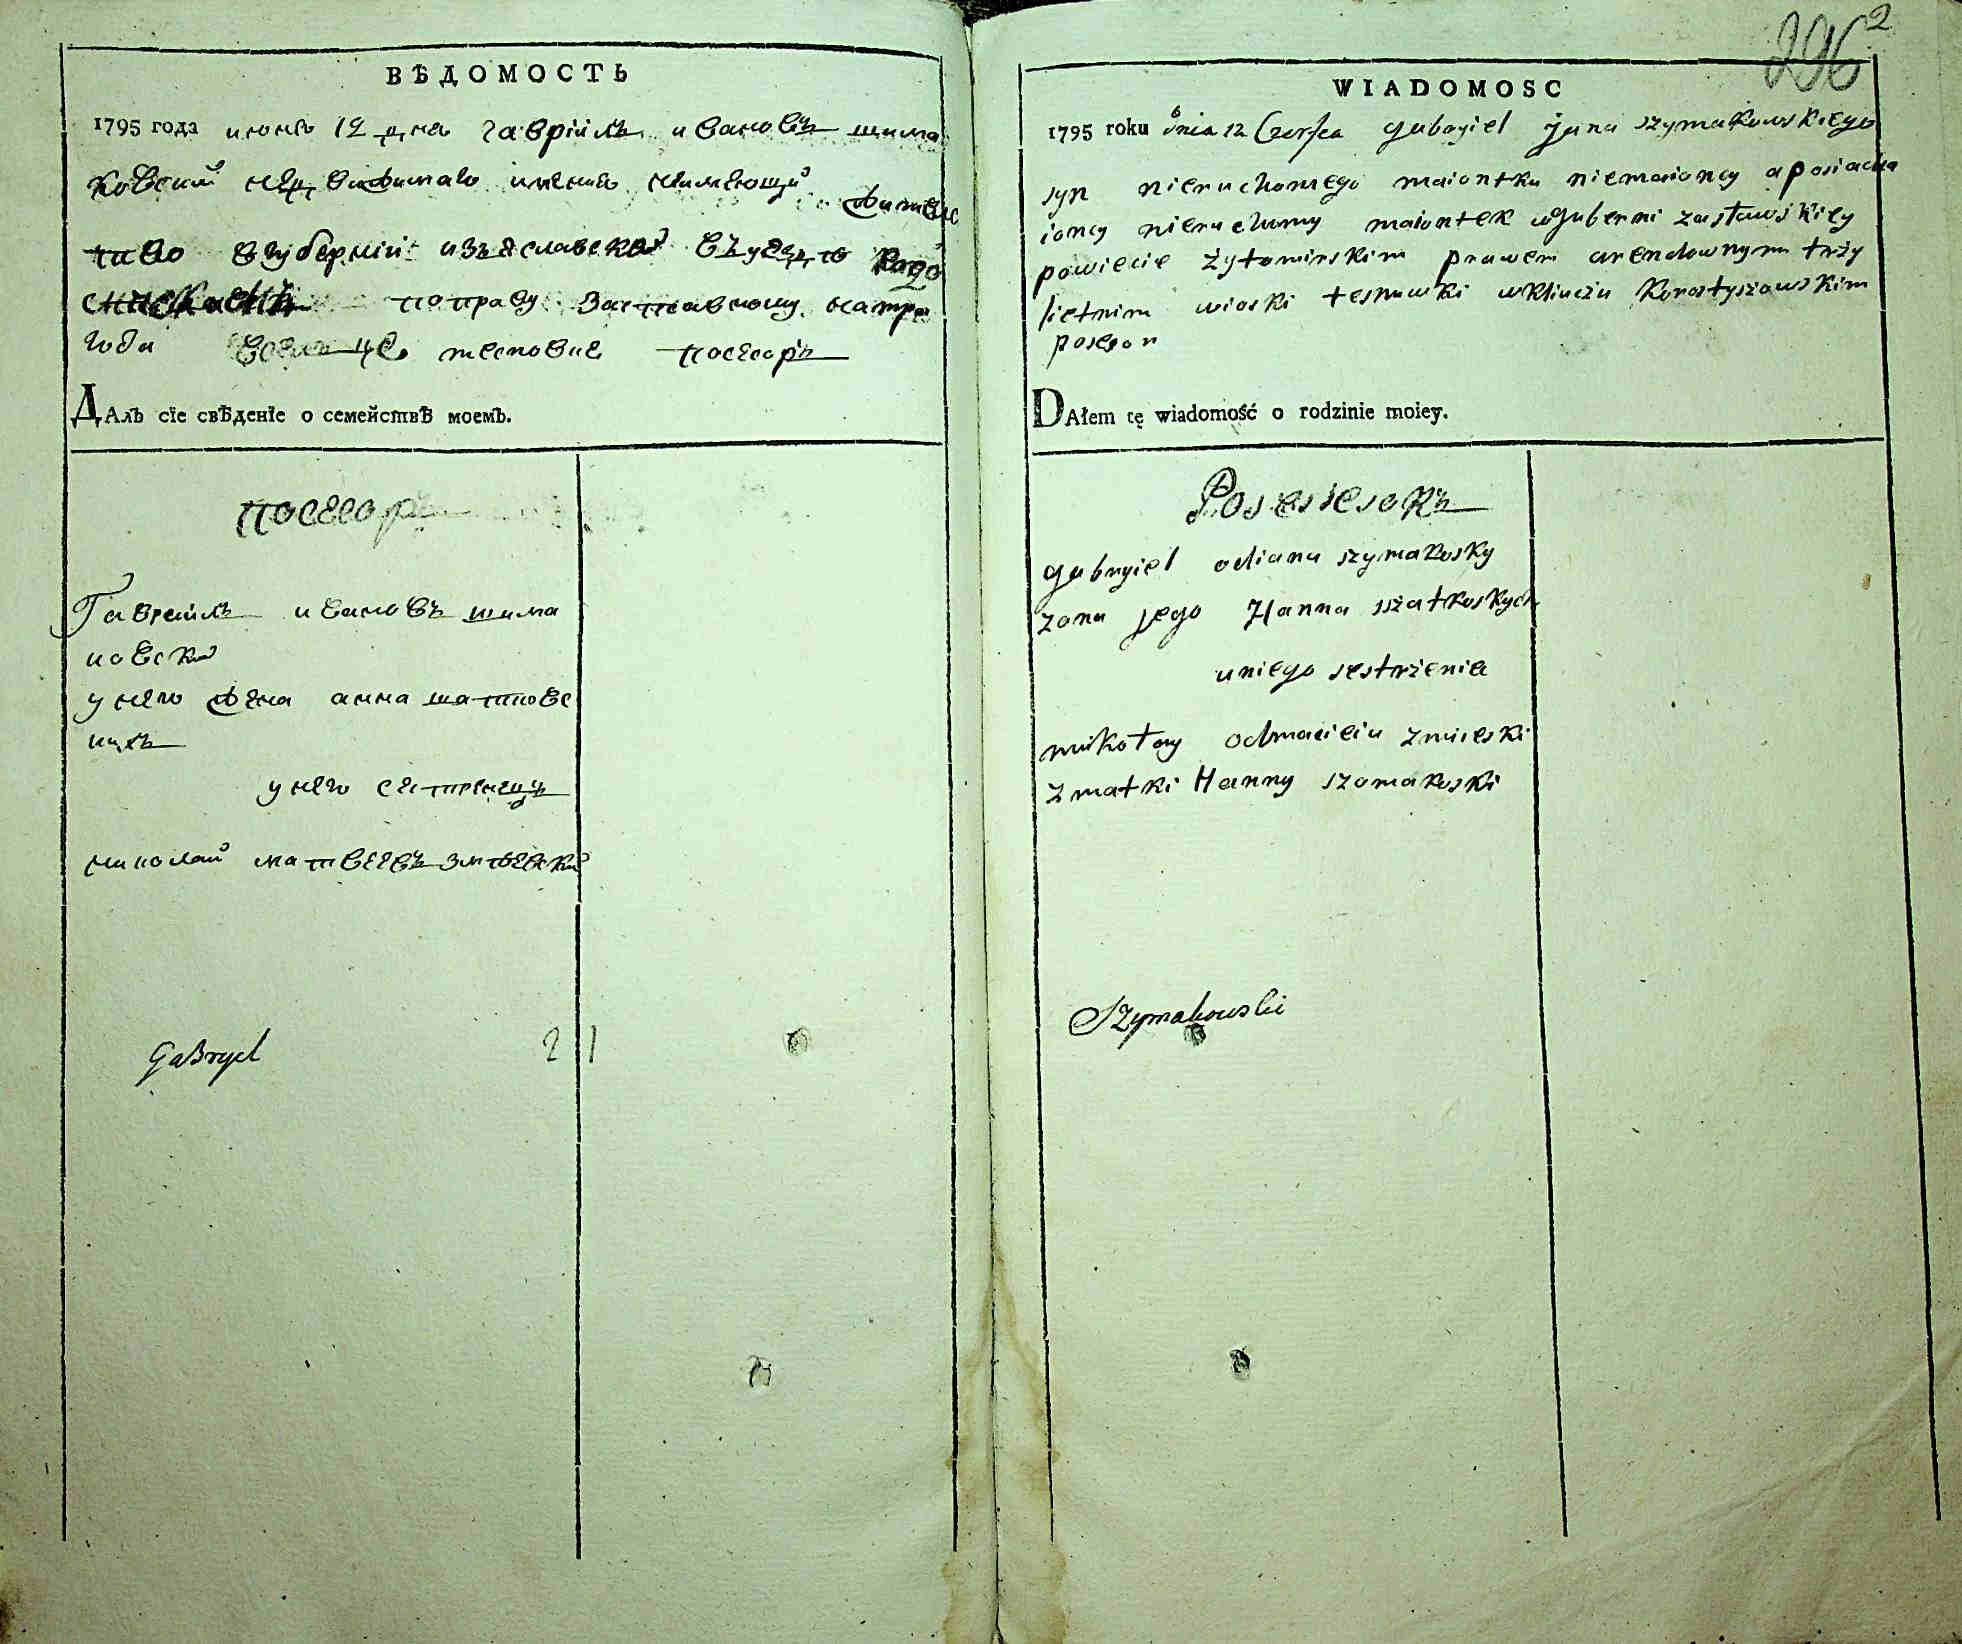 ВѢДОМОСТЬ
1795 года июнь 12 дня гаврiилъ ивановъ шима
ковский недвижимаго имения неимеющий
губернии изяславской въуезде
поправу заставному натри
года тесновке посесоръ
ДАлъ сїе свѣденїе о семействѣ моемъ.
посесоръ
Гавриилъ ивановъ шима
ковский
унего жена анна шатковс
кихъ
унего сестренецъ
николай матвеевъ змиевский
Gabryel 2 1
296 2
WIADOMOSC
1795 roku dnia 12 Czerfca gabryiel jana szymakowskiego
syn nieruchomego maiontku niemaioncy aposiada
ioncy nieruchomy maiontek wguberni zasławskiey
powiecie żytomirskim prawem arendownym trży
lietnim wioski tesnuwki wkliuczu korostyszowskim
posesor
DAłem tę wiadomość o rodzinie moiey.
Posesiesorъ
gabryiel odiana szymakosky
zona jego Hanna szatkoskych
uniego sestrżenie
mikołay odmacieiu zmieski
zmatki Hanny szomakoski
Szymakowski